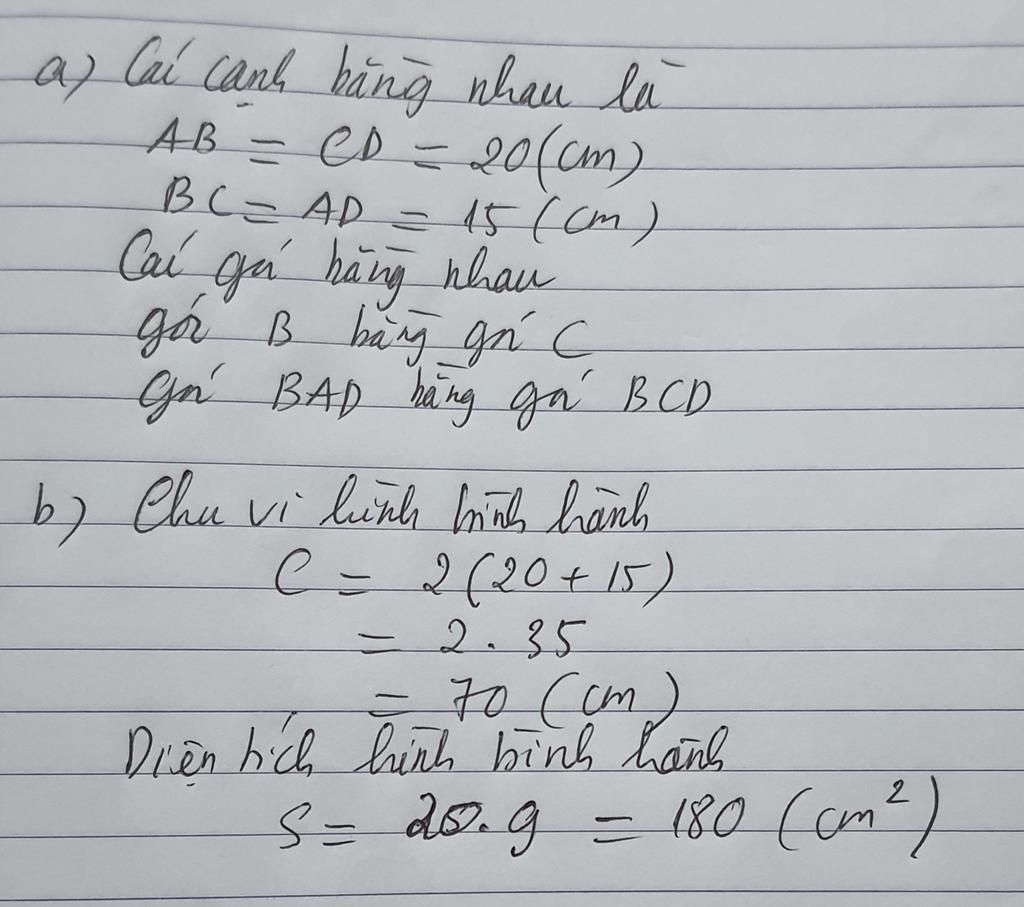 a) Các cạnh bằng nhau là
AB = CD = 20 (cm)
BC = AD = 15 (cm)
Các góc bằng nhau
góc B bằng góc C
Góc BAD bằng góc BCD
b) Chu vi hình bình hành
C = 2(20 + 15)
= 2 . 35
= 70 (cm)
Diện tích hình bình hành
S = 20 . 9 = 180 (cm²)